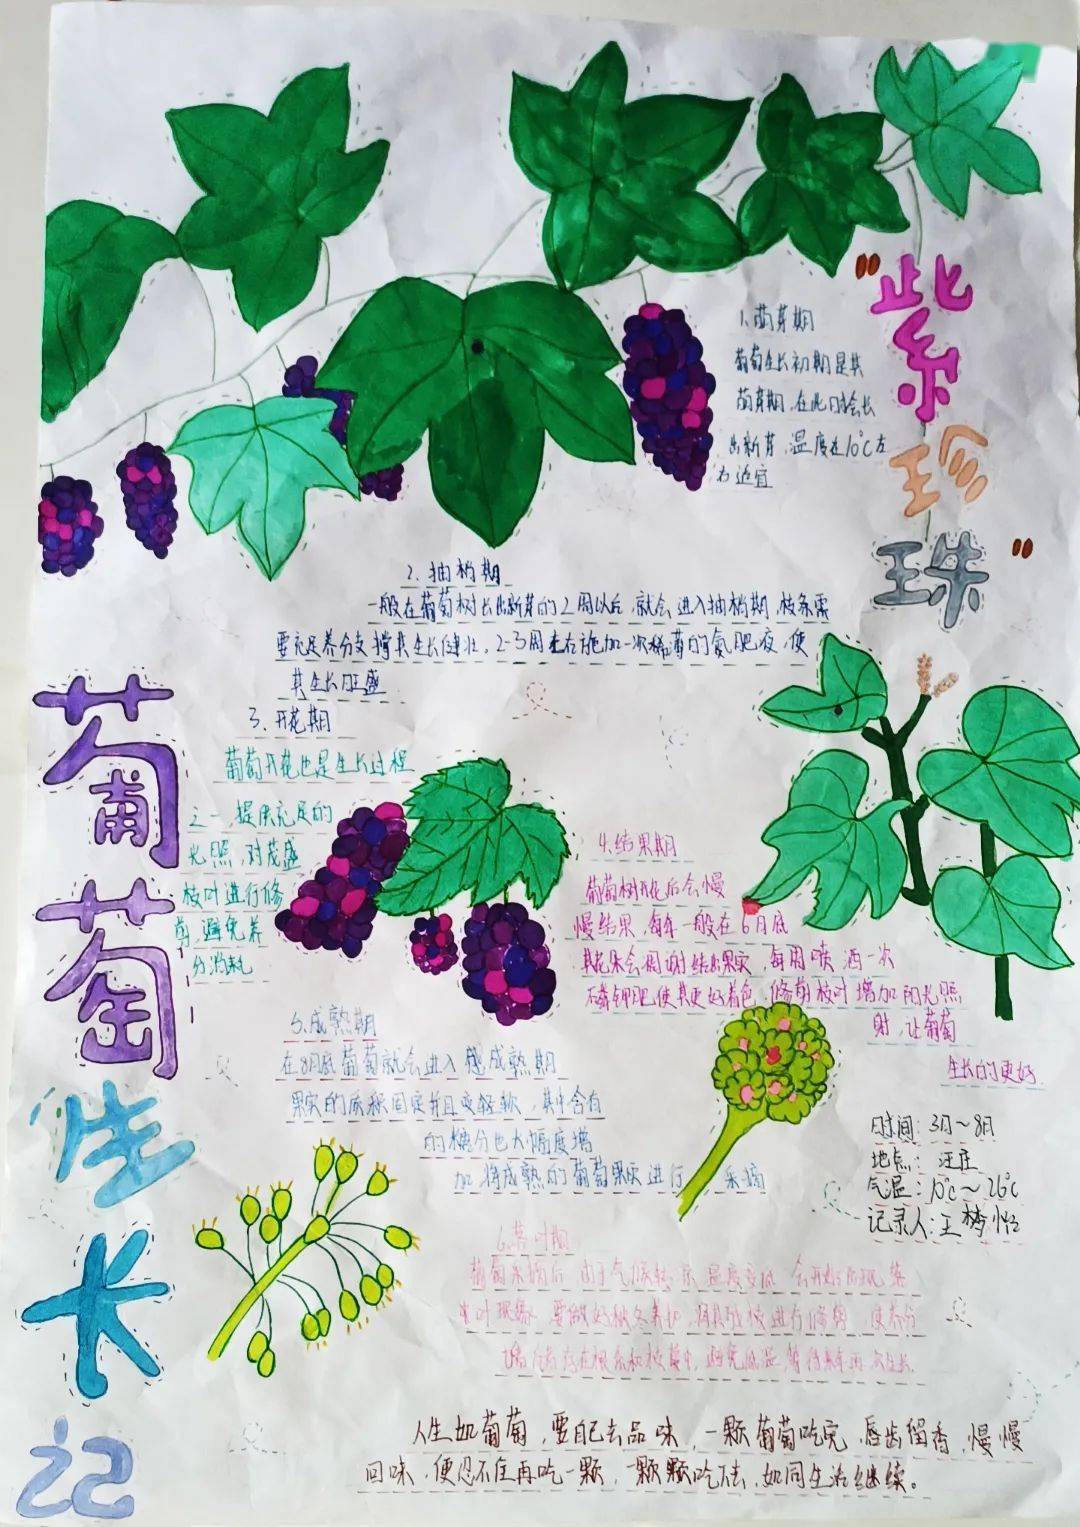 "紫珍珠"
葡萄生长记
1.萌芽期
葡萄生长初期是其
萌芽期,在此期会长
出新芽,温度在10℃左
右适宜
2.抽梢期
一般在葡萄树长出新芽的2周以后,就会进入抽梢期,枝条需
要充足养分支撑其生长健壮,2-3周左右施加一次稀薄的氮肥液,使
其生长旺盛
3.开花期
葡萄开花也是生长过程
之一,提供充足的
光照,对茂盛
枝叶进行修
剪,避免养
分消耗
4.结果期
葡萄树开花后会慢
慢结果,每年一般在6月底
其花朵会凋谢结出果实,每周喷洒一次
磷钾肥使其更好着色,修剪枝叶增加阳光照
射,让葡萄
生长的更好
5.成熟期
在8月底葡萄就会进入 成熟期
果实的质积固定并且变轻软,其中含有
的糖分也大幅度增
加,将成熟的葡萄果实进行 采摘
时间:3月~8月
地点:汪庄
气温:10℃~26℃
记录人:王梦怡
6.落叶期
葡萄采摘后,由于气候转凉,温度变低,会开始出现落
叶现象,要做好秋冬养护,将其残枝进行修剪,使养分
储存在根系和枝蔓中,避免低温,等待来年再次生长
人生如葡萄,要自己去品味,一颗葡萄吃完,唇齿留香,慢慢
回味,便忍不住再吃一颗,一颗颗吃下去,如同生活继续。